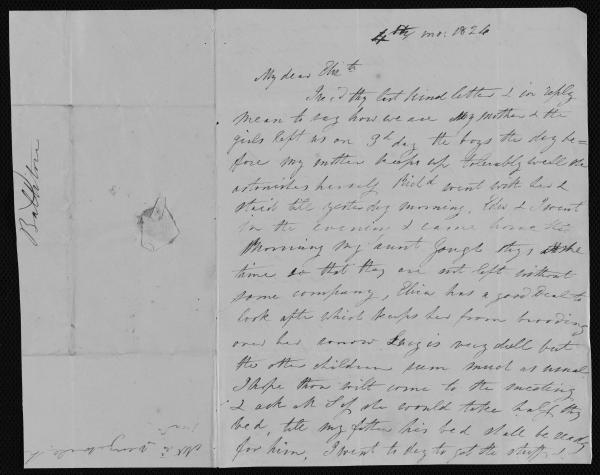 4th mo: 1826
My dear Elizth
I rec'd thy last kind letter & in reply
mean to say how we are My mother & the
girls left us on 3d day the boys the day be=
fore my mother keeps up tolerably well she
astonishes herself Rich'd went with her &
staid till yesterday morning. & I went
for the evening & came home the
Morning my aunt stays the
time so that they are not left without
some company, Eliza has a good deal to
look after which keeps her from brooding
over her sorrow Lucy is very dull but
the other children seem much as usual
I hope thou wilt come to the meeting
I ask M S if she would take half thy
bed, till my father his bed shall be ready
for him, I went to day to get the stuff &
Ballston